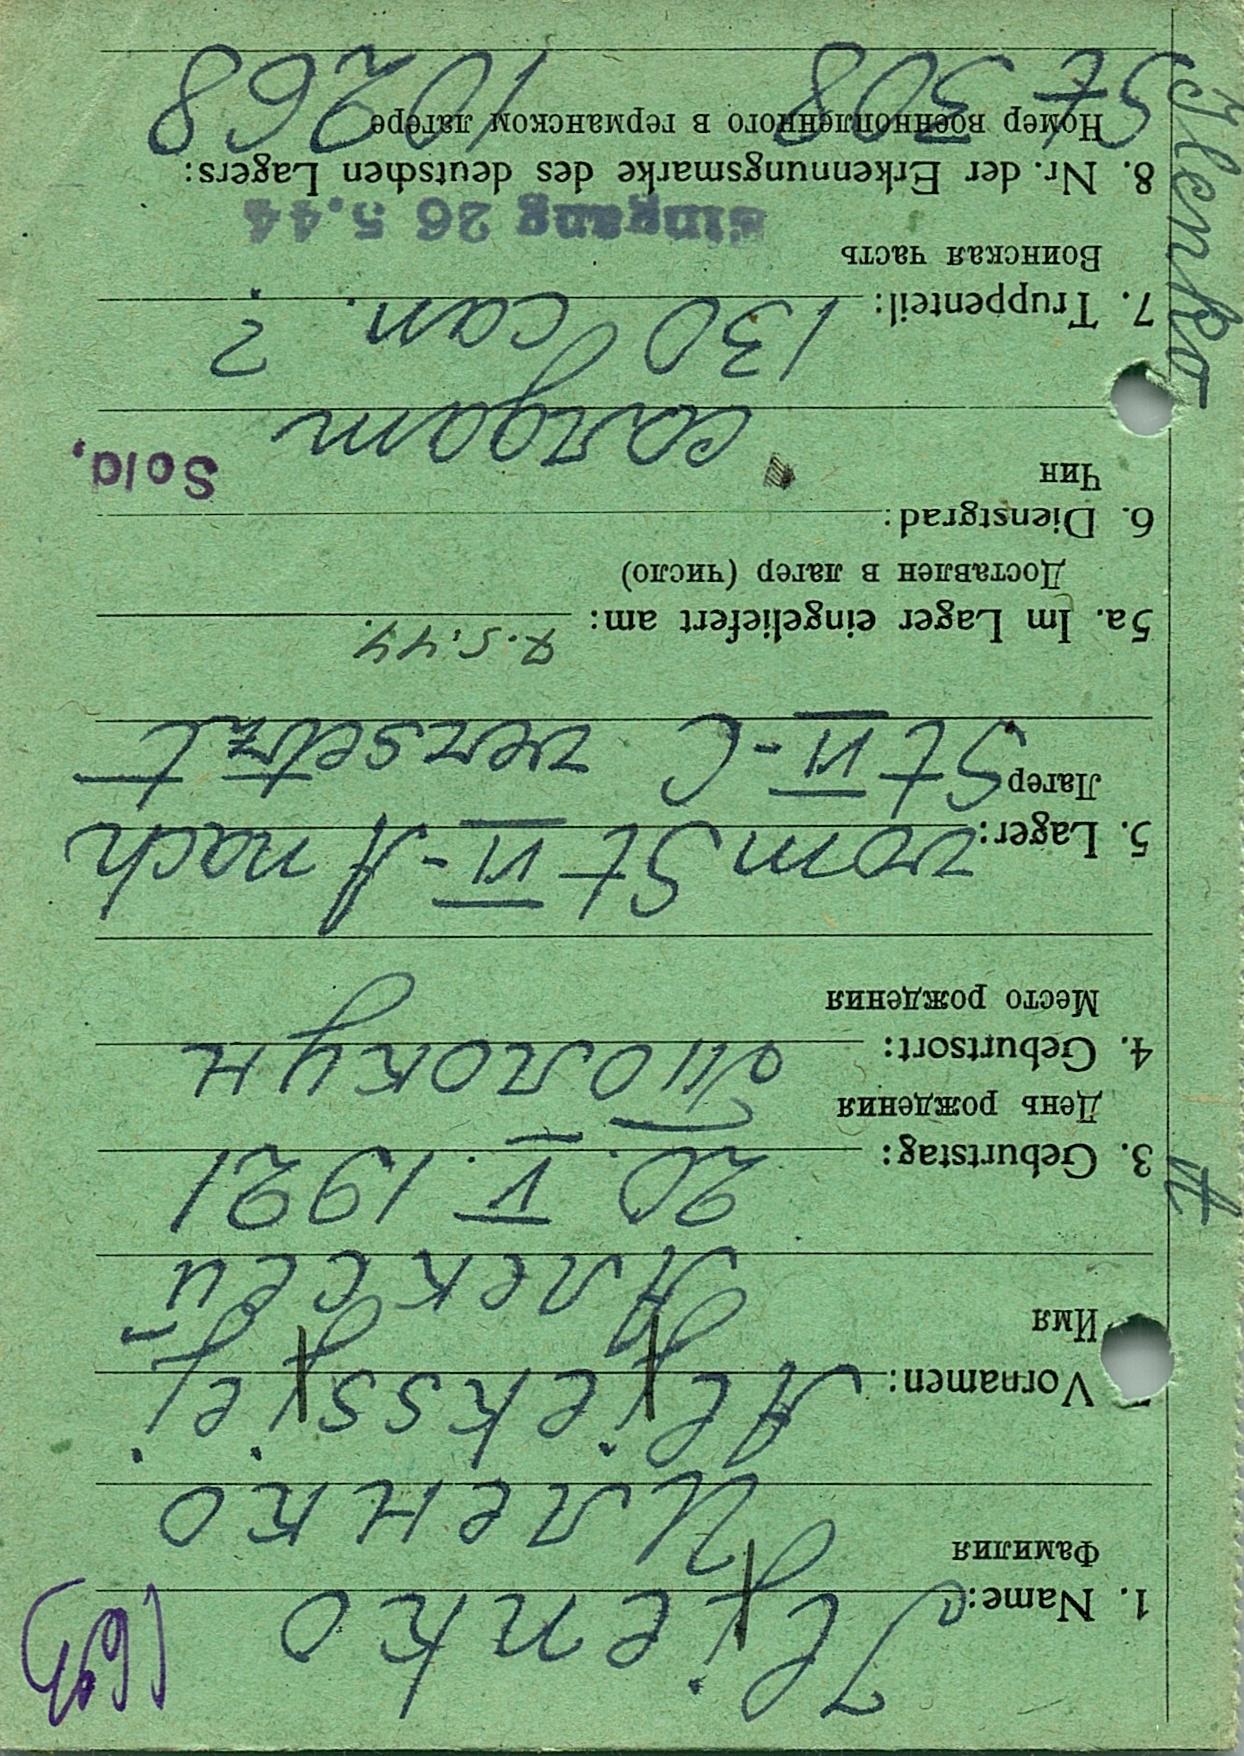 1. Name: Iljenko
Фамилия Иленко
Vornamen: Aljeksjej
Имя Алексей
3. Geburtstag: 20. V. 1921
День рождения
4. Geburtsort:
Место рождения
5. Lager: vom St VI-A nach
Лагер St VI-C versetzt
5a. Im Lager eingeliefert am: 7.5.44.
Доставлен в лагер (число)
6. Dienstgrad:
Чин солдат Sold.
7. Truppenteil: 130 сап. ?
Воинская часть
Eingang 26 5.44
8. Nr. der Erkennungsmarke des deutschen Lagers:
Номер военнопленного в германском лагере
St 308 10268
Ilenko